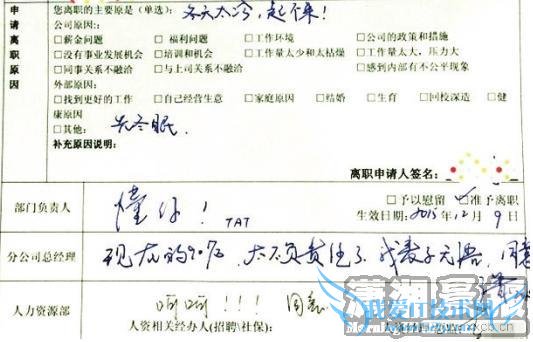 申请离职原因
您离职的主要原是(单选): 冬天太冷,起不来!
公司原因:
□薪金问题 □福利问题 □工作环境 □公司的政策和措施
□没有事业发展机会 □培训和机会 □工作量太少和太枯燥 □工作量太大、压力大
□同事关系不融洽 □与上司关系不融洽 □感到内部有不公平现象
外部原因:
□找到更好的工作 □自己经营生意 □家庭原因 □结婚 □生育 □回校深造 □健
康原因
□其他: 先冬眠.
补充原因说明:
离职申请人签名:
部门负责人 懂你! TAT □予以慰留 准予离职
生效日期: 2015年12月9日
分公司总经理 现在的90后,太不负责任了,我表示无语,同意
人力资源部 呵呵!!! 同意
人资相关经办人(招聘\社保):